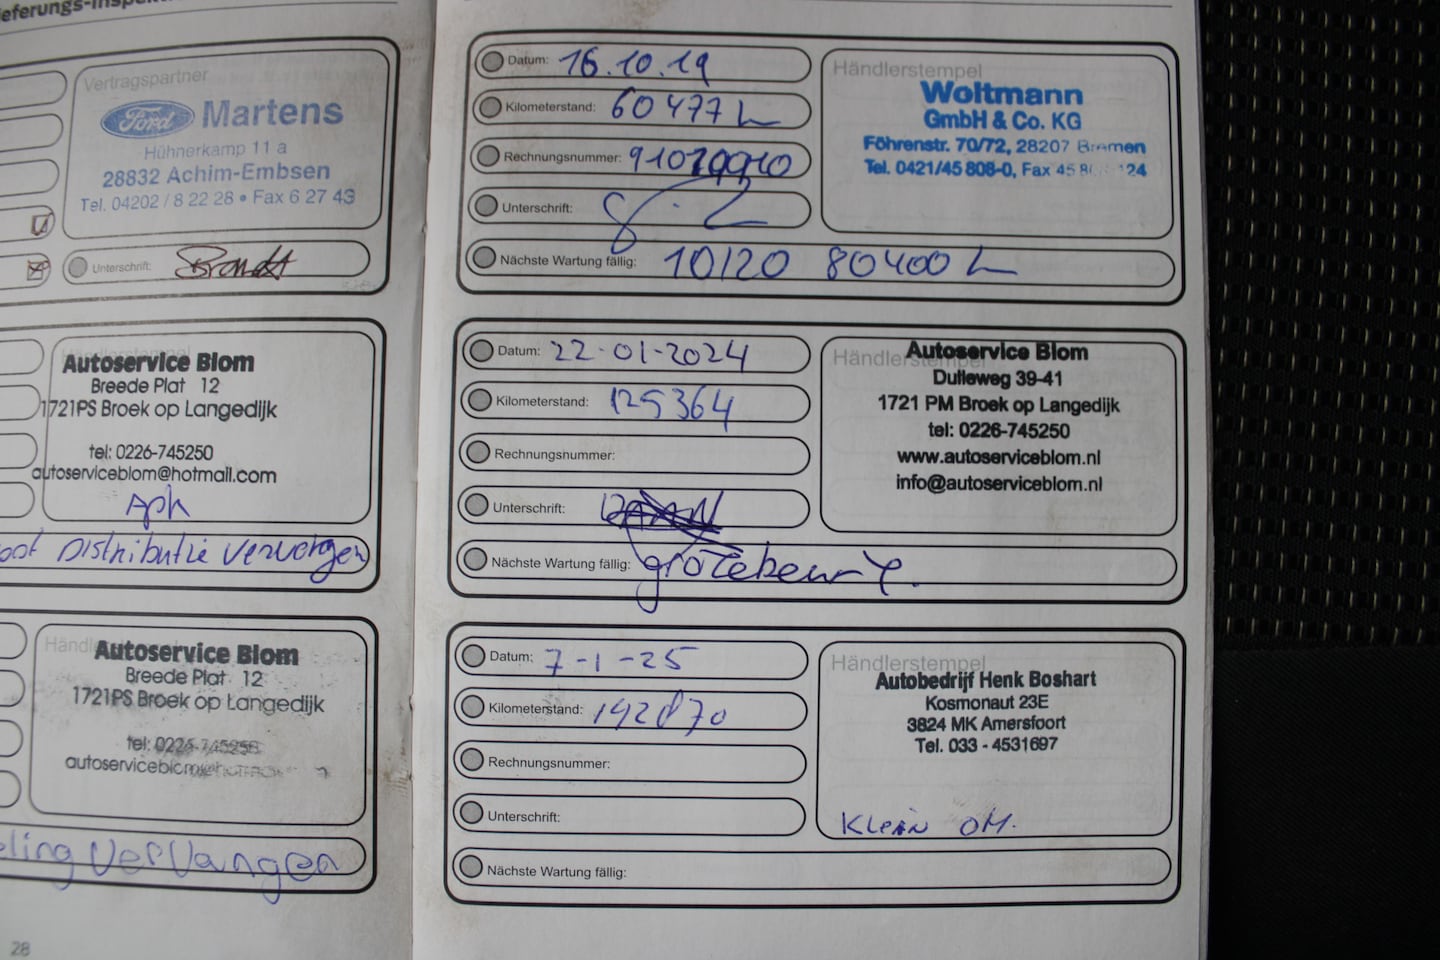 Vertragspartner
Ford Martens
Hühnerkamp 11 a
28832 Achim-Embsen
Tel. 04202 / 8 22 28 • Fax 6 27 43
Unterschrift: Brandt
Autoservice Blom
Breede Plat 12
1721PS Broek op Langedijk
tel: 0226-745250
autoserviceblom@hotmail.com
Apk
Distributie vervangen
Autoservice Blom
Breede Plat 12
1721PS Broek op Langedijk
tel: 0226-745250
vervangen
28
Datum: 16.10.19
Kilometerstand: 60477 k
Rechnungsnummer:
Unterschrift:
Nächste Wartung fällig: 10/20 80400 k
Händlerstempel
Woltmann
GmbH & Co. KG
Föhrenstr. 70/72, 28207 Bremen
Tel. 0421/45 808-0, Fax 45 8 124
Datum: 22-01-2024
Kilometerstand: 125364
Rechnungsnummer:
Unterschrift:
Nächste Wartung fällig: grote beurt.
Händlerstempel
Autoservice Blom
Dulleweg 39-41
1721 PM Broek op Langedijk
tel: 0226-745250
www.autoserviceblom.nl
info@autoserviceblom.nl
Datum: 7-1-25
Kilometerstand: 142870
Rechnungsnummer:
Unterschrift:
Nächste Wartung fällig:
Händlerstempel
Autobedrijf Henk Boshart
Kosmonaut 23E
3824 MK Amersfoort
Tel. 033 - 4531697
Klein OH.